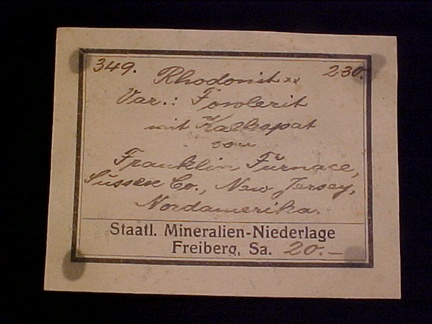 349. 230.
Rhodonit xx
Var.: Fowlerit
mit Kalkspat
von
Franklin Furnace,
Sussex Co., New Jersey,
Nordamerika.
Staatl. Mineralien-Niederlage
Freiberg, Sa. 20.—